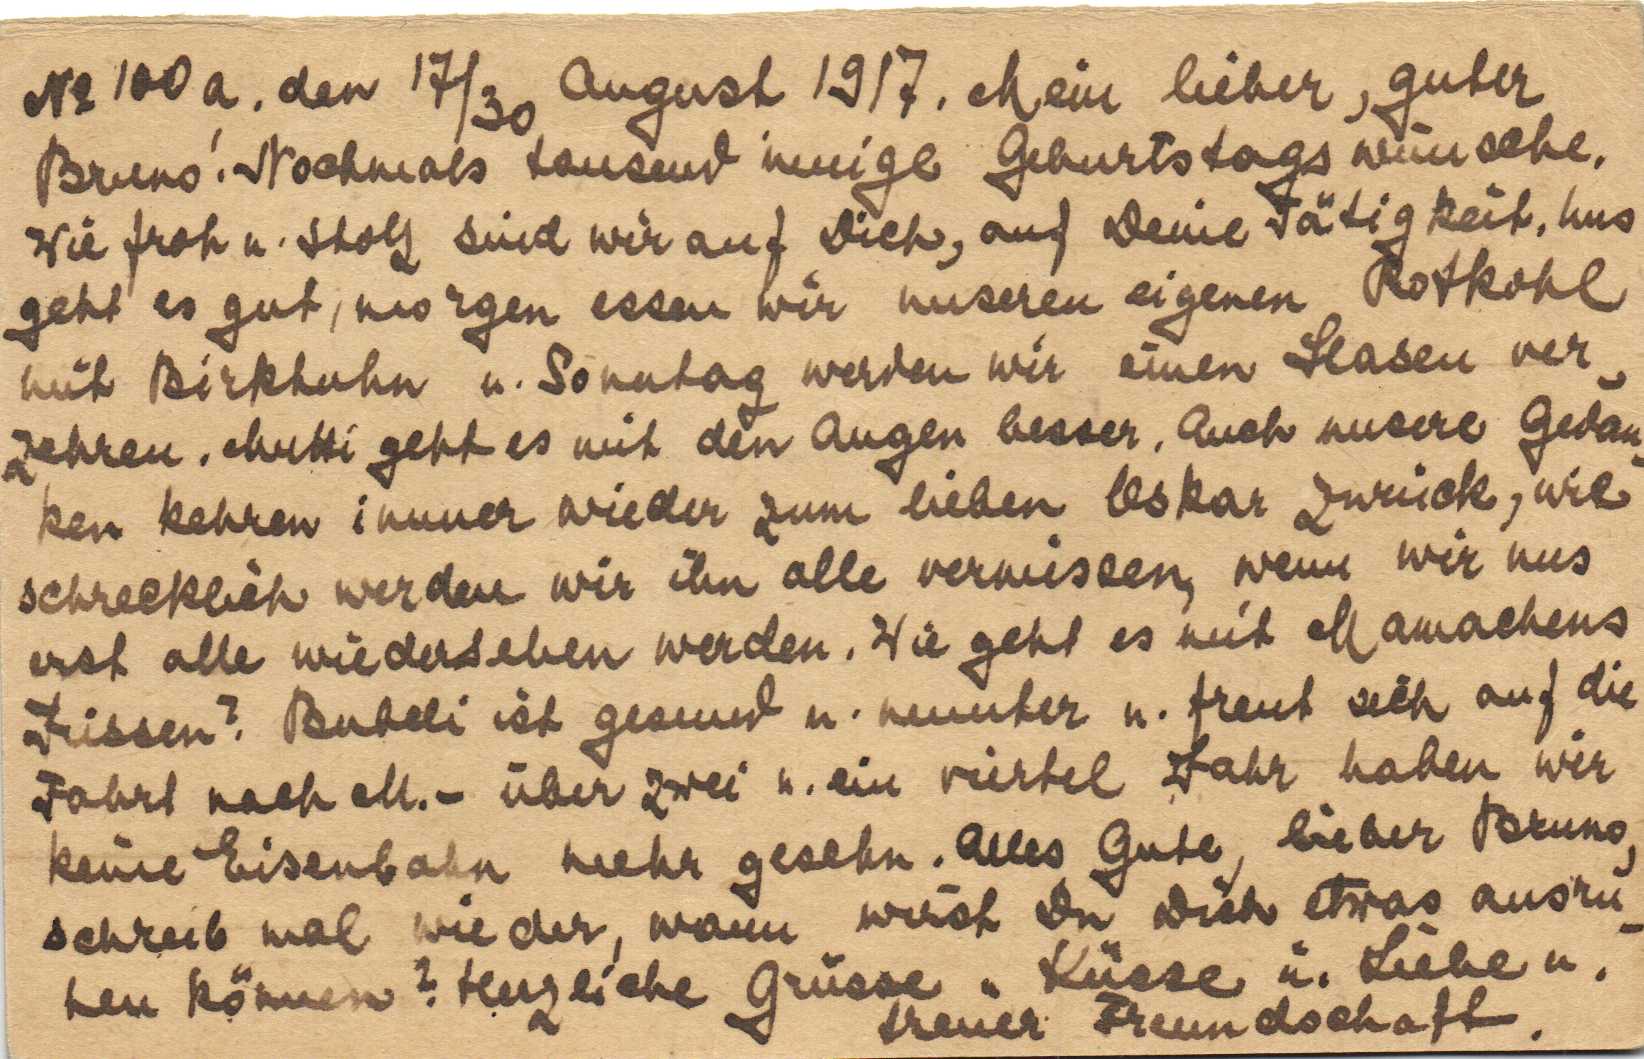 № 100 a. den 17/30 August 1917. Mein lieber, guter
Bruno! Nochmals tausend innige Geburtstagswünsche.
Wie froh u. stolz sind wir auf Dich, auf Deine Tätigkeit. Uns
geht es gut, morgen essen wir unseren eigenen Rotkohl
mit Birkhuhn u. Sonntag werden wir einen Hasen ver-
zehren. Mutti geht es mit den Augen besser. Auch unsere Gedan-
ken kehren immer wieder zum lieben Oskar zurück, wie
schrecklich werden wir ihn alle vermissen, wenn wir uns
erst alle wiedersehen werden. Wie geht es mit Mamachens
Füssen? Bubeli ist gesund u. munter u. freut sich auf die
Fahrt nach M. - über zwei u. ein viertel Jahr haben wir
keine Eisenbahn mehr gesehn. Alles Gute, lieber Bruno,
schreib mal wieder, wann wirst Du Dich etwas ausru-
hen können? Herzliche Grüsse u. Küsse u. Liebe u.
treuer Freundschaft.